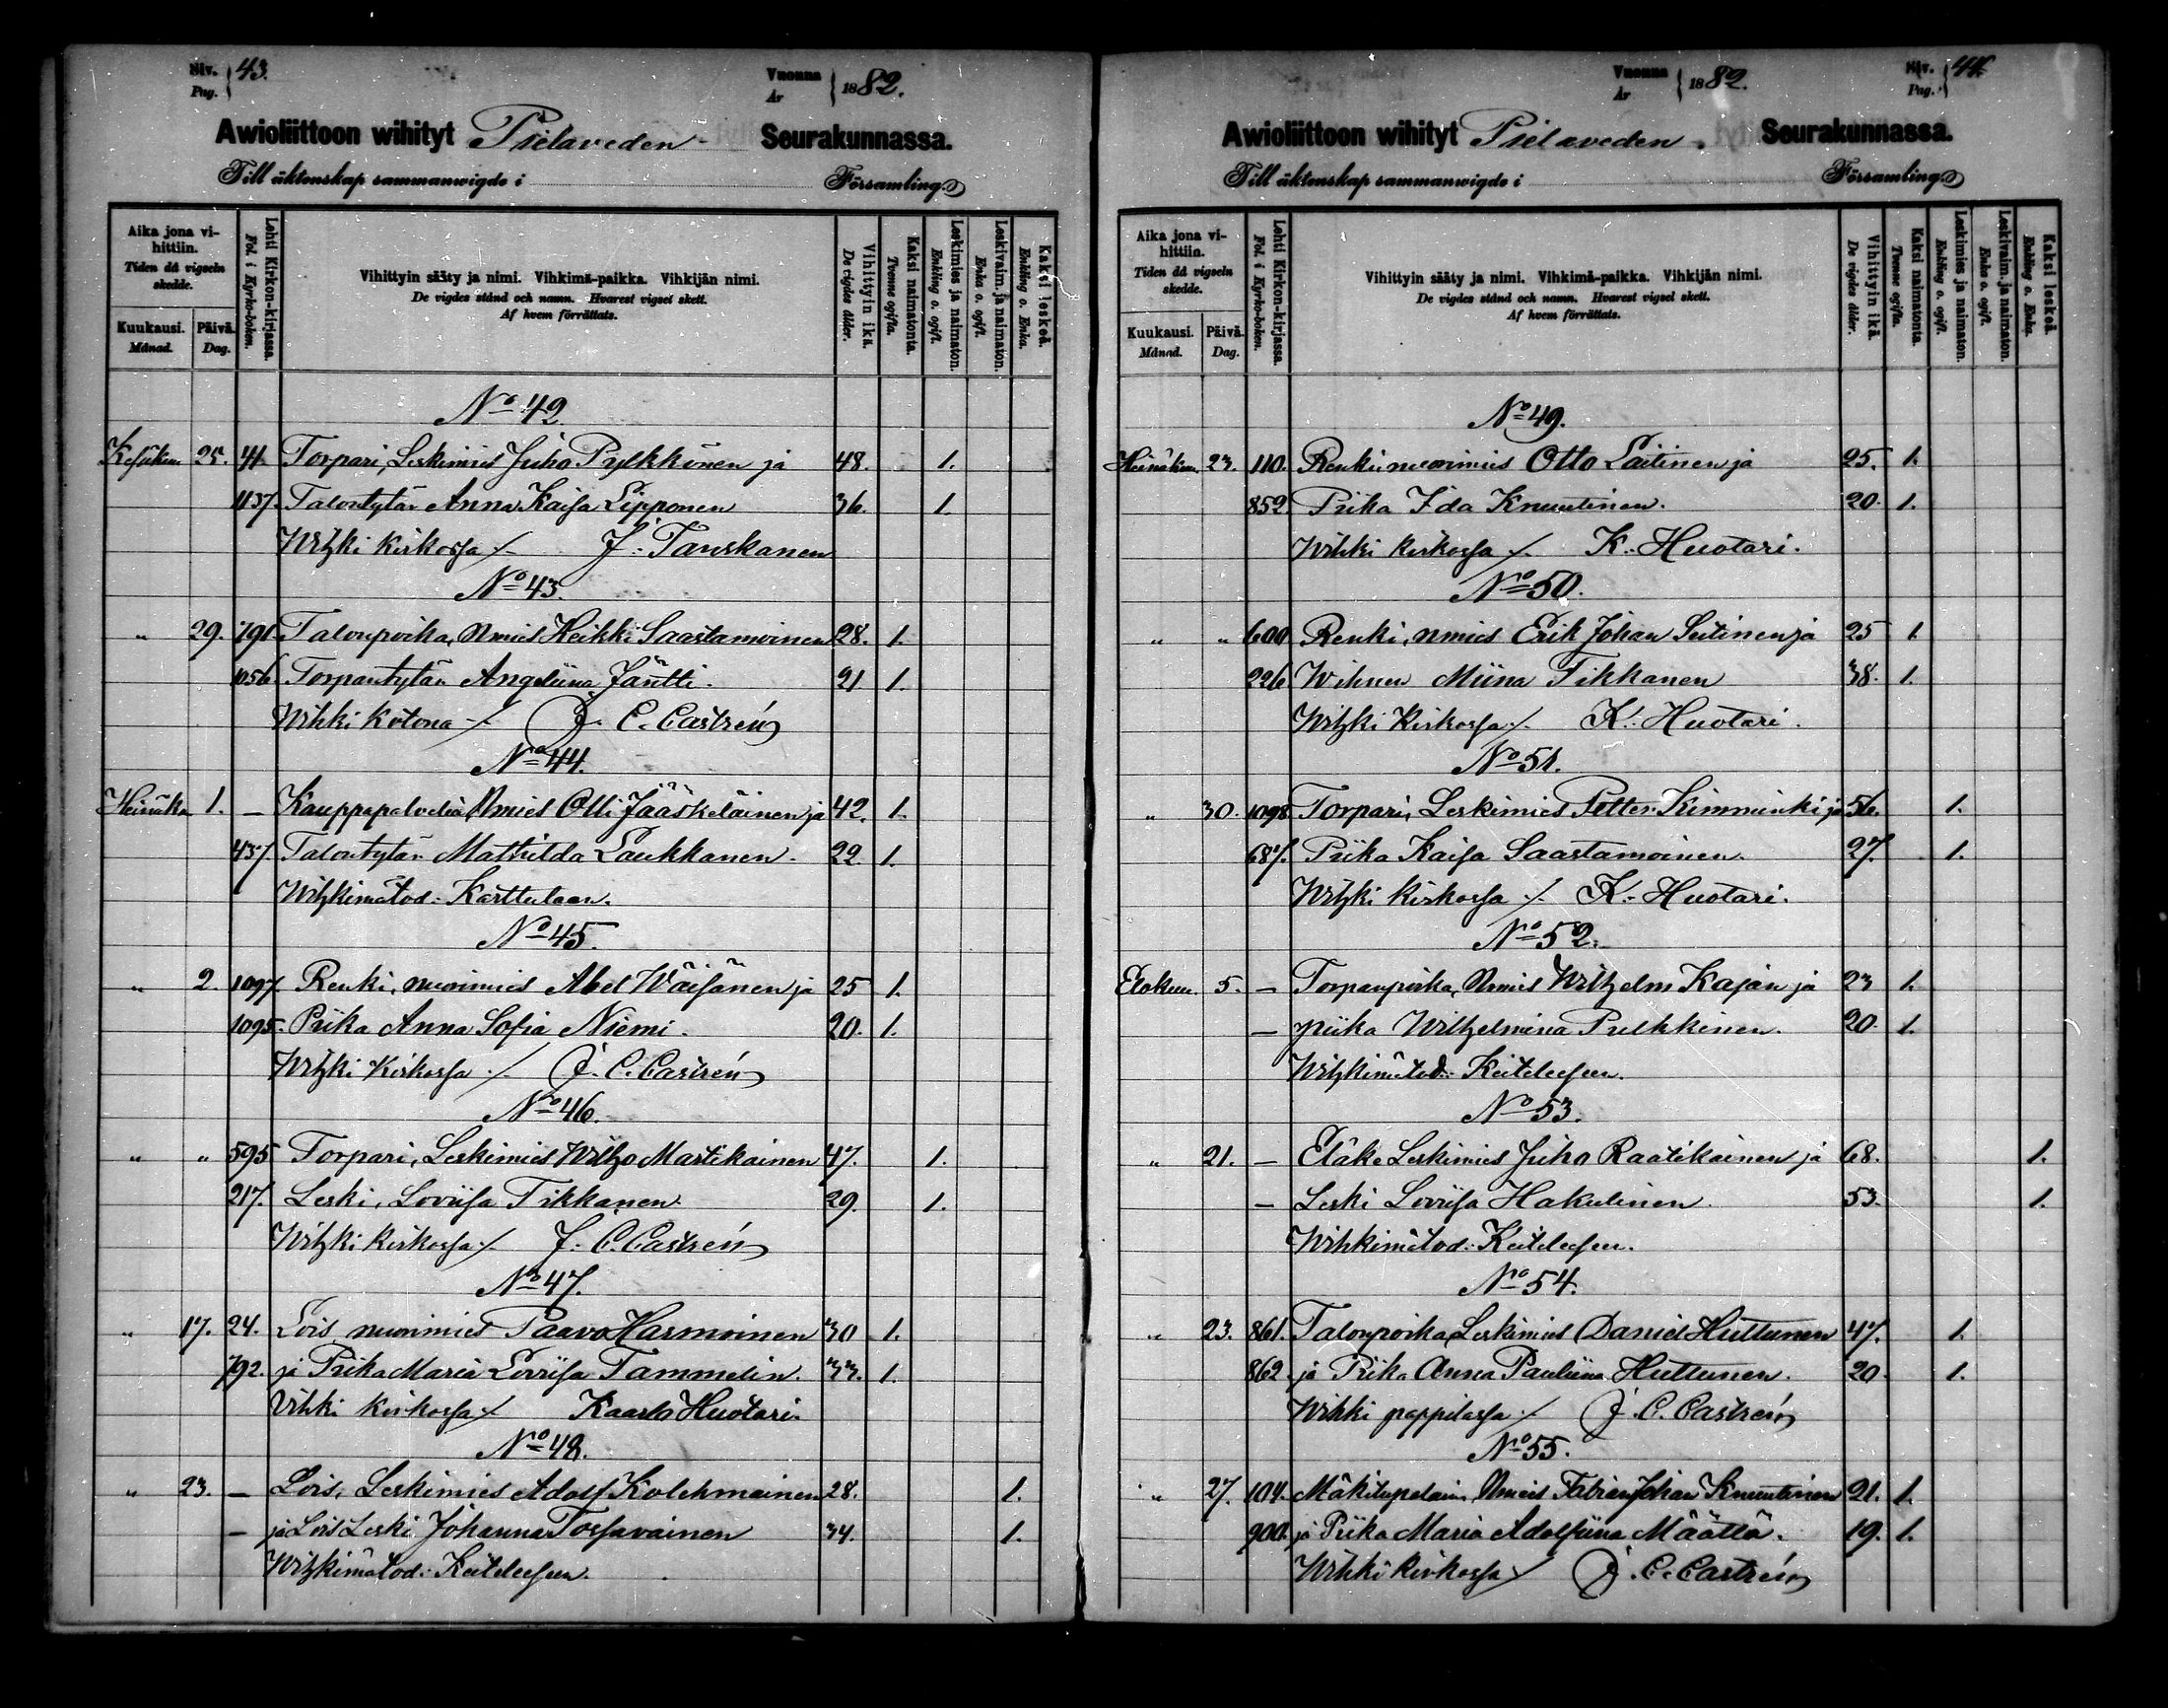 Siv. Pag. 43.
Vuonna År 1882.
Awioliittoon wihityt Pielaveden Seurakunnassa.
Till äktenskap sammanwigde i Församling
Aika jona vihittiin. Tiden då vigseln skedde.
Kuukausi. Månad.
Päivä. Dag.
Lehti Kirkon-kirjassa. Fol. i Kyrko-boken.
Vihittyin sääty ja nimi. Vihkimä-paikka. Vihkijän nimi.
De vigdes stånd och namn. Hvarest vigsel skett.
Af hvem förrättats.
Vihittyin ikä. De vigdes ålder.
Kaksi naimatonta. Tvenne ogifta.
Leskimies ja naimaton. Enkling o. ogift.
Leskivaim. ja naimaton. Enka o. ogift.
Kaksi leskeä. Enkling o. Enka.
No 42.
Kesäkuu 25. 41. Torpari, Leskimies Juho Pylkkönen ja 48. 1.
1137. Talontytär Anna Kaisa Lipponen 36. 1.
Wihki kirkossa /. J. Tanskanen
No 43.
" 29. 791. Talonpoika, Nmies Heikki Saastamoinen 28. 1.
1056. Torpantytär Angeliina Jäntti. 21 1.
Wihki kotona /. J. C. Castrén
No 44.
Heinäku 1. — Kauppapalvelia, Nmies Olli Jääskeläinen ja 42. 1.
437. Talontytär Mathilda Laukkanen. 22. 1.
Wihkimätod. Karttulaan.
No 45.
" 2. 1097 Renki, nuorimies Abel Wäisänen ja 25 1.
1095. Piika Anna Sofia Niemi. 20. 1.
Wihki Kirkossa /. J. C. Castrén
No 46.
" " 595 Torpari, Leskimies Wilho Martikainen 47. 1.
217. Leski, Loviisa Tikkanen 29. 1.
Wihki kirkossa /. J. C. Castrén
No 47.
" 17. 24. Lois, nuorimies Paavo Harmoinen 30 1.
792. ja Piika Maria Loviisa Tammelin. 33. 1.
Vihki kirkossa /. Kaarlo Huotari.
No 48.
" 23. — Lois, Leskimies Adolf Kolehmainen 28. 1.
— ja Lois Leski Johanna Tossavainen 34. 1.
Wihkimätod. Keiteleesen.
Siv. Pag. 44.
Vuonna År 1882.
Awioliittoon wihityt Pielaveden Seurakunnassa.
Till äktenskap sammanwigde i Församling
Aika jona vihittiin. Tiden då vigseln skedde.
Kuukausi. Månad.
Päivä. Dag.
Lehti Kirkon-kirjassa. Fol. i Kyrko-boken.
Vihittyin sääty ja nimi. Vihkimä-paikka. Vihkijän nimi.
De vigdes stånd och namn. Hvarest vigsel skett.
Af hvem förrättats.
Vihittyin ikä. De vigdes ålder.
Kaksi naimatonta. Tvenne ogifta.
Leskimies ja naimaton. Enkling o. ogift.
Leskivaim. ja naimaton. Enka o. ogift.
Kaksi leskeä. Enkling o. Enka.
No 49.
Heinäkuu. 23. 110. Renki nuorimies Otto Laitinen ja 25. 1.
852 Piika Ida Knuutinen. 20. 1.
Wihki kirkossa /. K. Huotari.
No 50.
" " 600 Renki, nmies Erik Johan Leitinen ja 25 1.
226 Miina Tikkanen 38. 1.
Wihki Kirkossa /. K. Huotari.
No 51.
" 30. 1098 Torpari, Leskimies Petter Kimminki ja 56. 1.
687. Piika Kaisa Saastamoinen. 27. 1.
Wihki kirkossa /. K. Huotari.
No 52.
Elokuu. 5. — Torpanpoika, Nmies Wilhelm Kajan ja 23 1.
— piika Wilhelmiina Pulkkinen. 20. 1.
Wihkimätod. Keiteleesen.
No 53.
" 21. — Eläke Leskimies Juho Raatikainen ja 68. 1.
— Leski Loviisa Hakulinen. 53. 1.
Wihkimätod. Keiteleesen.
No 54.
" 23. 861. Talonpoika, Leskimies Daniel Huttunen 47. 1.
862 ja Piika Anna Pauliina Huttunen. 20. 1.
Wihki pappilassa /. J. C. Castrén
No 55.
" 27. 104. Mäkitupalain. Nmies Fabian Johan Knuutinen 21. 1.
900. ja Piika Maria Adolfiina Määttä. 19. 1.
Wihki kirkossa / J. C. Castrén